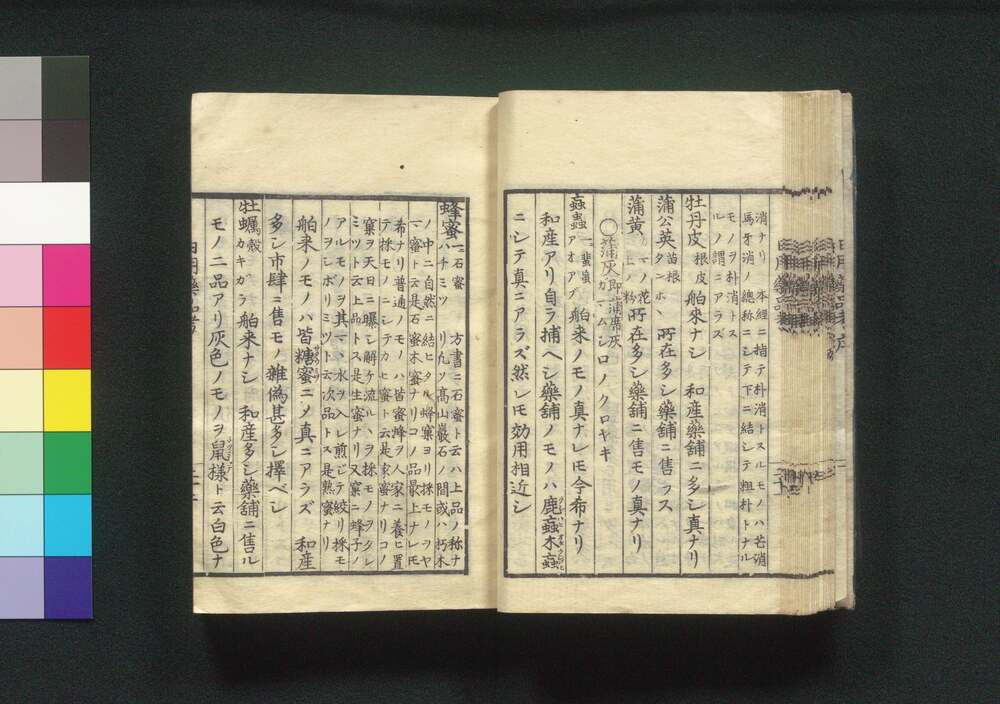 消ナリ　本經ニ指テ朴消トスルモノハ芒消
馬牙消ノ總称ニシテ下ニ結シテ粗朴トナル
モノヲ朴消トス
ルノ謂ニアラズ
牡丹皮 根皮 舶來ナシ　和産藥舗ニ多シ真ナリ
蒲公英 苗根 タンホヽ 所在多シ藥舗ニ售フス
蒲黄 ガマノ花ノ上ノ粉 所在多シ藥舗ニ售モノ真ナリ
○蒲灰 即蒲席灰 ガマムシロノクロヤキ
蝱蟲 一ニ蜚蝱 アオアブ 舶来ノモノ真ナレ𪜈今希ナリ
和産アリ自ラ捕ヘシ藥舗ノモノハ鹿蝱木蝱
ニシテ真ニアラズ然レ𪜈効用相近シ
蜂蜜 一ニ石蜜 ハチミツ 方書ニ石蜜ト云ハ上品ノ称ナ
リ凡ソ髙山巖石ノ間或ハ朽木
ノ中ニ自然ニ結ヒタル蜂窠ヨリ採モノヲヤ
マ蜜ト云是石蜜木蜜ナリコノ品最上ナレ𪜈
希ナリ普通ノモノハ皆蜜蜂ヲ人家ニ養ヒ置
テ採モノニシテカヒ蜜ト云是家蜜ナリコノ
窠ヲ天日ニ曝シ解ケ流ルヽヲ採モノヲタレ
ミツト云上品トス是生蜜ナリ又窠ニ蜂子ノ
アルモノヲ其マヽ水ヲ入レ煎じテ絞リ採モ
ノヲシボリミツト云次品トス是熟蜜ナリ
舶来ノモノハ皆糖蜜ニメ真ニアラズ　和産
多シ市肆ニ售モノ雜偽甚多シ擇ベシ
牡蠣 殻 カキガラ 舶來ナシ　和産多シ藥舗ニ售ル
モノ二品アリ灰色ノモノヲ鼠樣ト云白色ナ